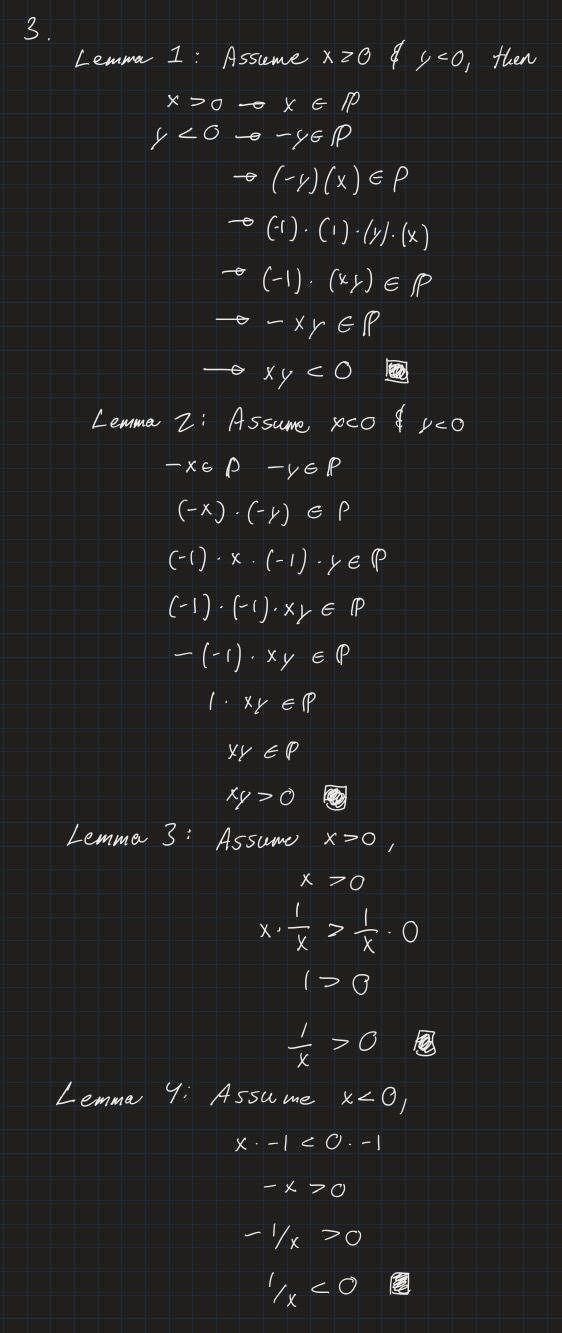 3.
Lemma 1: Assume x>0 & y<0, then
x>0 → x ∈ ℙ
y<0 → -y∈ℙ
→ (-y)(x) ∈ ℙ
→ (-1)·(1)·(y)·(x)
→ (-1)·(xy) ∈ ℙ
→ -xy ∈ ℙ
→ xy < 0
Lemma 2: Assume x<0 & y<0
-x∈ ℙ -y∈ℙ
(-x)·(-y) ∈ ℙ
(-1)·x·(-1)·y∈ℙ
(-1)·(-1)·xy∈ ℙ
-(-1)·xy ∈ℙ
1·xy∈ℙ
xy∈ℙ
xy>0
Lemma 3: Assume x>0,
x>0
x·1/x > 1/x·0
1>0
1/x >0
Lemma 4: Assume x<0,
x·-1<0·-1
-x>0
-1/x >0
1/x <0